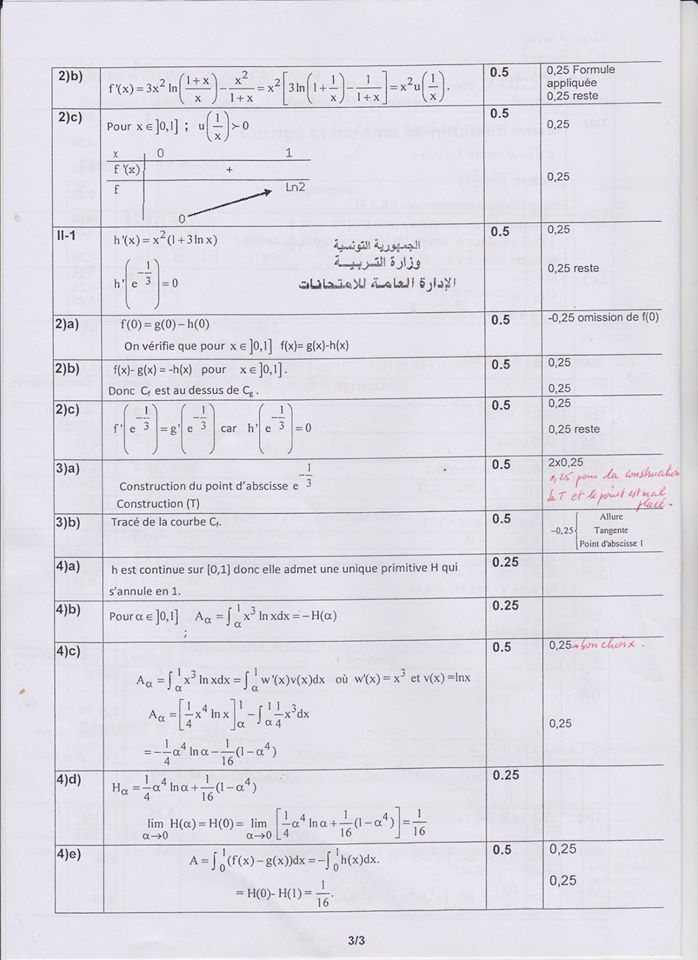 2)b) f'(x) = 3x² ln((1+x)/x) − x²/(1+x) = x²[3ln(1+1/x) − 1/(1+x)] = x²u(1/x). 0.5 0,25 Formule
appliquée
0,25 reste
2)c) Pour x ∈ ]0,1] ; u(1/x) ≻ 0 0.5 0,25
x 0 1
f '(x) + 0,25
f Ln2
0
II-1 h'(x) = x²(1+3lnx) 0.5 0,25
الجمهورية التونسية
وزارة التربية
الإدارة العامة للامتحانات
h'(e^(−1/3)) = 0 0,25 reste
2)a) f(0) = g(0) − h(0) 0.5 -0,25 omission de f(0)
On vérifie que pour x ∈ ]0,1] f(x)= g(x)-h(x)
2)b) f(x)- g(x) = -h(x) pour x ∈ ]0,1]. 0.5 0,25
Donc Cf est au dessus de Cg. 0,25
2)c) f'(e^(−1/3)) = g'(e^(−1/3)) car h'(e^(−1/3)) = 0 0.5 0,25
0,25 reste
3)a) Construction du point d'abscisse e^(−1/3) 0.5 2x0,25
Construction (T)
0,25 pour la construction
de T et le point est mal
placé.
3)b) Tracé de la courbe Cf. 0.5 −0,25 { Allure
Tangente
Point d'abscisse 1
4)a) h est continue sur [0,1] donc elle admet une unique primitive H qui 0.25
s'annule en 1.
4)b) Pour α ∈ ]0,1] Aα = ∫α¹ x³ ln xdx = −H(α) 0.25
;
4)c) 0.5 0,25 → bon choix.
Aα = ∫α¹ x³ ln xdx = ∫α¹ w'(x)v(x)dx où w'(x) = x³ et v(x) =lnx
Aα = [1/4 x⁴ ln x]α¹ − ∫α¹ 1/4 x³dx 0,25
= −1/4 α⁴ ln α − 1/16 (1−α⁴)
4)d) Hα = 1/4 α⁴ ln α + 1/16 (1−α⁴) 0.25
lim α→0 H(α) = H(0) = lim α→0 [1/4 α⁴ ln α + 1/16 (1−α⁴)] = 1/16
4)e) A = ∫0¹ (f(x) − g(x))dx = −∫0¹ h(x)dx. 0.5 0,25
= H(0)- H(1) = 1/16. 0,25
3/3